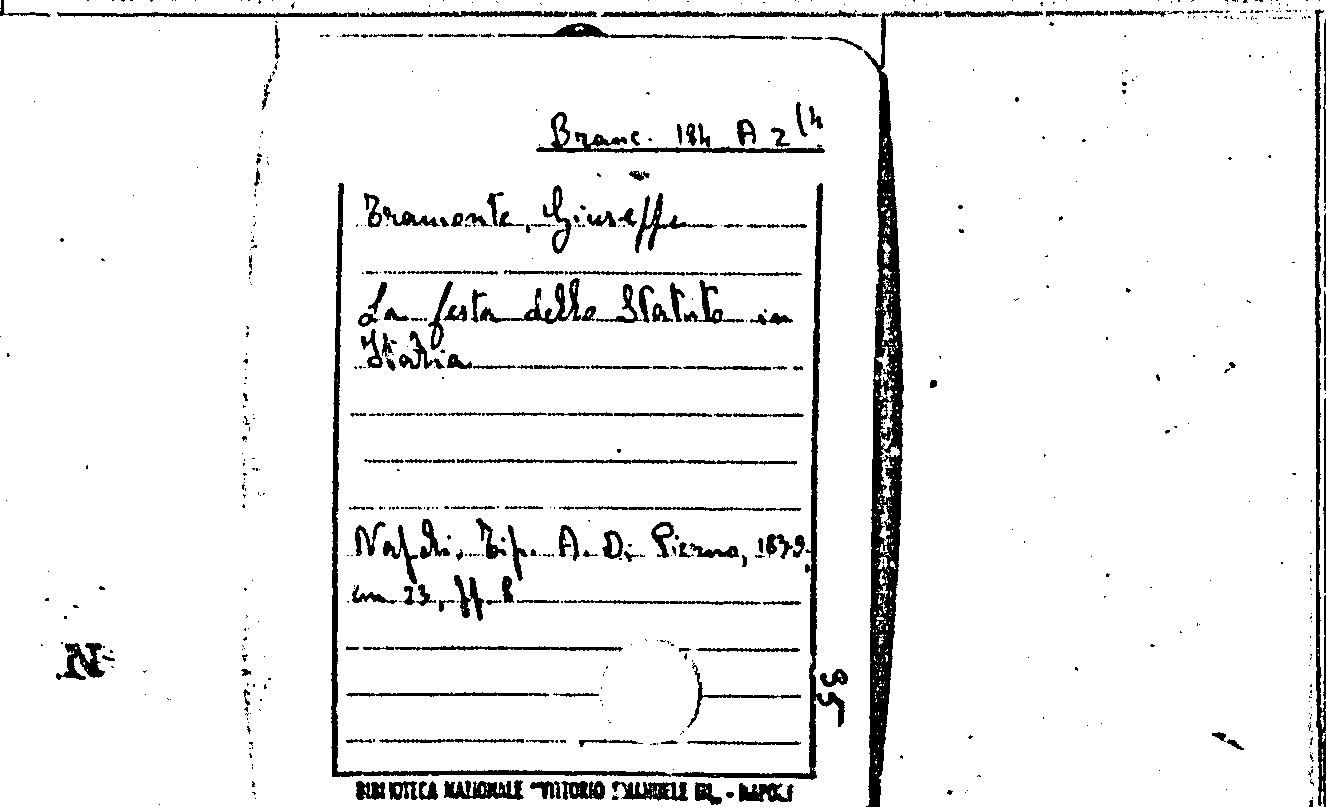 Branc. 184 A 2 (4
Tramonte, Giuseppe
La festa dello Statuto in
Italia
Napoli, Tip. A. Di Pierno, 1879,
cm 23, pp. 8
BIBLIOTECA NAZIONALE "VITTORIO EMANUELE III" - NAPOLI